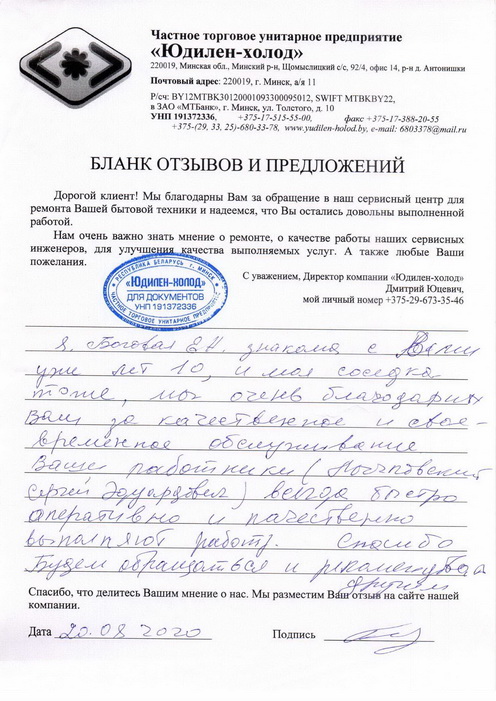 Частное торговое унитарное предприятие
«Юдилен-холод»
220019, Минская обл., Минский р-н, Щомыслицкий с/с, 92/4, офис 14, р-н д. Антонишки
Почтовый адрес: 220019, г. Минск, а/я 11
Р/сч: BY12MTBK30120001093300095012, SWIFT MTBKBY22,
в ЗАО «МТБанк», г. Минск, ул. Толстого, д. 10
УНП 191372336, +375-17-515-55-00, факс +375-17-388-20-55
+375-(29, 33, 25)-680-33-78, www.yudilen-holod.by, e-mail: 6803378@mail.ru
БЛАНК ОТЗЫВОВ И ПРЕДЛОЖЕНИЙ
Дорогой клиент! Мы благодарны Вам за обращение в наш сервисный центр для
ремонта Вашей бытовой техники и надеемся, что Вы остались довольны выполненной
работой.
Нам очень важно знать мнение о ремонте, о качестве работы наших сервисных
инженеров, для улучшения качества выполняемых услуг. А также любые Ваши
пожелания.
С уважением, Директор компании «Юдилен-холод»
Дмитрий Юцевич,
мой личный номер +375-29-673-35-46
РЕСПУБЛИКА БЕЛАРУСЬ г. МИНСК
«ЮДИЛЕН-ХОЛОД»
ДЛЯ ДОКУМЕНТОВ
УНП 191372336
ЧАСТНОЕ ТОРГОВОЕ УНИТАРНОЕ ПРЕДПРИЯТИЕ
Я, Боговая Е.Н. знакома с Вами
уже лет 10, и моя соседка
тоже, мы очень благодарны
Вам за качественное и свое-
временное обслуживание
Ваши работники (
Сергей Эдуардович) всегда быстро
оперативно и качественно
выполняют работу. Спасибо
Будем обращаться и рекомендовать
другим
Спасибо, что делитесь Вашим мнение о нас. Мы разместим Ваш отзыв на сайте нашей
компании.
Дата 20.08 2020 Подпись